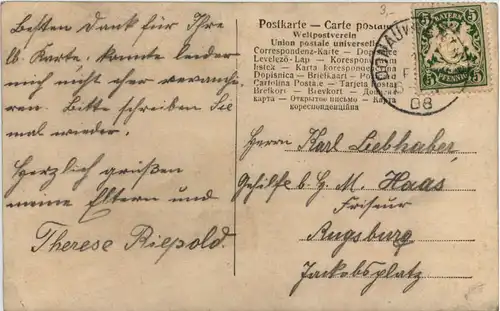 Besten Dank für Ihre
lb. Karte, konnte leider
mich nicht eher revanchi-
eren. Bitte schreiben Sie
mal wieder.
Herzlich grüßen
meine Eltern und
Therese Riepold.
3.-
Postkarte — Carte postale
Weltpostverein
Union postale universelle
Correspondenz-Karte — Dopisnice
Levelező-Lap — Korespondenti
listek — Karta korespondencyjna
Dopisnica — Briefkaart —
Cartolina Postale — Tarjeta Postal
Brefkort — Brevkort —
карта — Открытое письмо — Карта
кореспонденційна
5 BAYERN 5
5 PFENNIG 5
08
Herrn Karl Liebhaber,
Gehilfe b. H. M. Haas
Friseur
Augsburg
Jackobsplatz